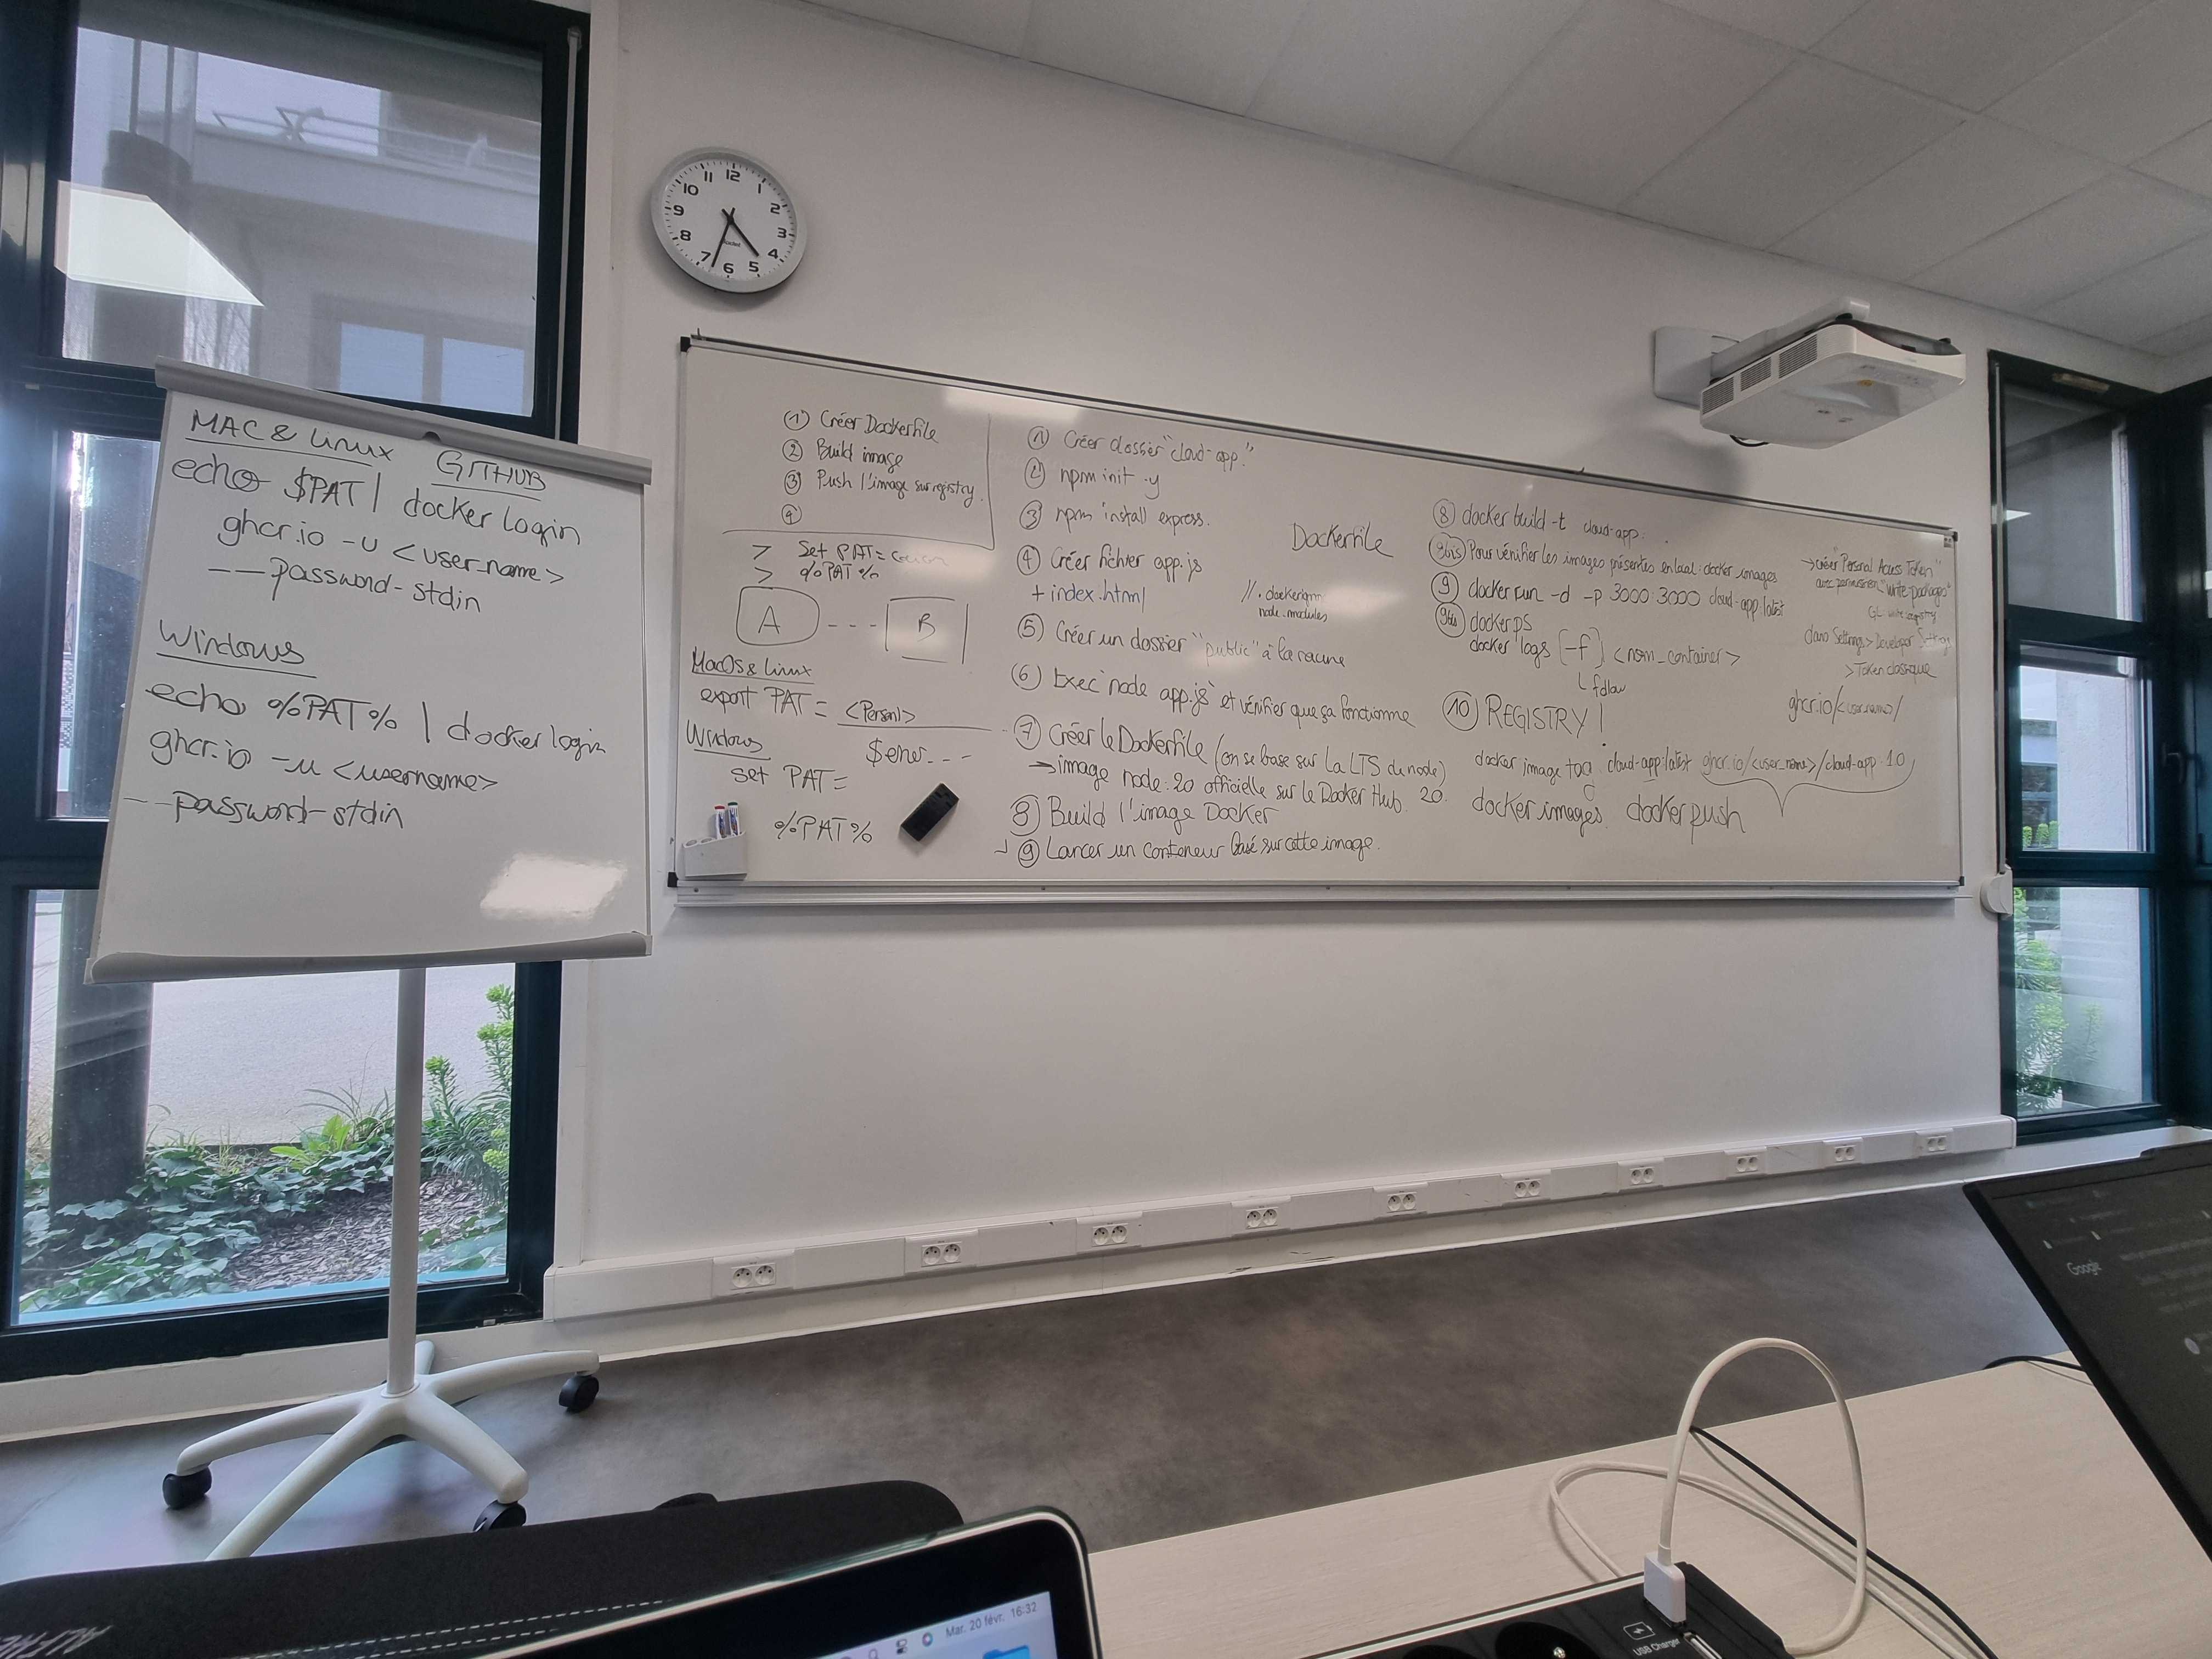 MAC & Linux
GITHUB
echo $PAT | docker login
ghcr.io -u <user_name>
--password-stdin
Windows
echo %PAT% | docker login
ghcr.io -u <username>
--password-stdin
12
1
2
3
4
5
6
7
8
9
10
11
① Créer Dockerfile
② Build image
③ Push l'image sur registry
④
> Set PAT=
> %PAT%
A --- B
MacOs & Linux
export PAT = <Person>
Windows
$env...
set PAT =
%PAT%
① Créer dossier "cloud-app"
② npm init -y
③ npm install express.
④ Créer fichier app.js
+ index.html
⑤ Créer un dossier "public" à la racine
⑥ Exec "node app.js" et vérifier que ça fonctionne
⑦ Créer le Dockerfile (on se base sur la LTS de node)
→ image node:20 officielle sur le Docker Hub. 20.
⑧ Build l'image Docker
⑨ Lancer un conteneur basé sur cette image.
Dockerfile
node_modules
⑧ docker build -t cloud-app .
Pour vérifier les images présentes en local: docker images
⑨ docker run -d -p 3000:3000 cloud-app:latest
9bis docker ps
docker logs [-f] <nom_container>
⑩ REGISTRY !
docker image tag cloud-app:latest ghcr.io/<user_name>/cloud-app:1.0
docker images docker push
→ créer "Personal Access Token"
avec permission "write:packages"
dans Settings > Developer Settings
> Token classique
ghcr.io/<username>/
Mar. 20 févr. 16:32
Google
USB Charger